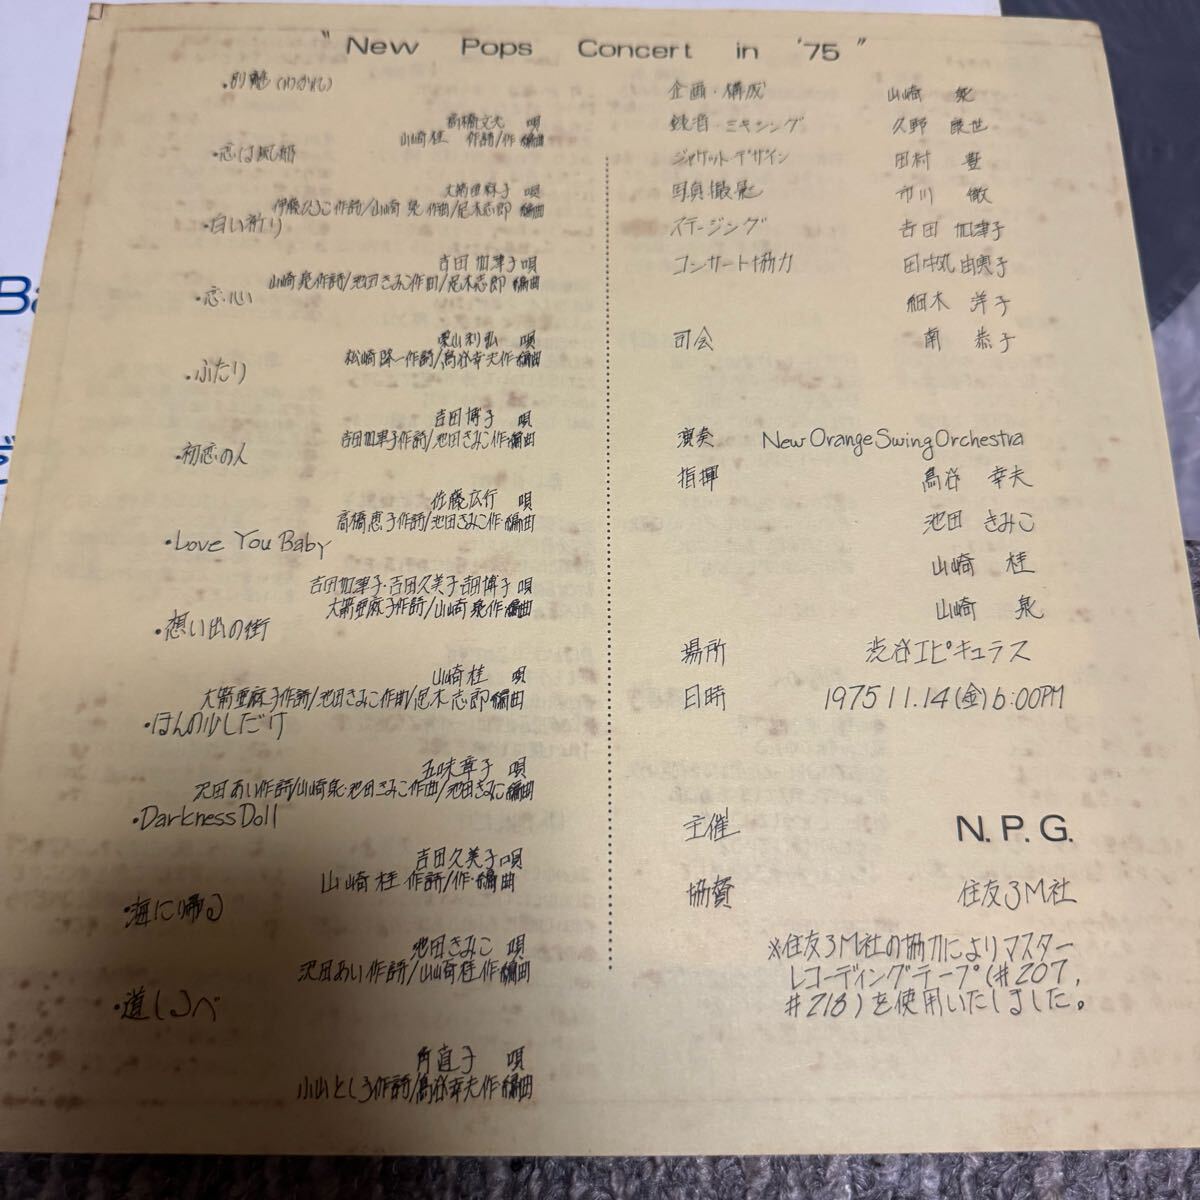 "New Pops Concert in '75"
・別離(わかれ)
高橋文夫 唄
山崎桂 作詩/作・編曲
・恋は風船
大箭亜麻子 唄
伊藤ひろこ作詩/山崎 泉 作曲/尾木志郎 編曲
・白い祈り
吉田加津子 唄
山崎泉作詩/池田きみこ作曲/尾木志郎 編曲
・恋心
栗山利弘 唄
松崎隆一作詩/鳥谷幸夫作・編曲
・ふたり
吉田博子 唄
吉田加津子作詩/池田きみこ作・編曲
・初恋の人
佐藤広行 唄
高橋恵子作詩/池田きみこ作・編曲
・Love You Baby
吉田加津子・吉田久美子・吉田博子 唄
大箭亜麻子作詩/山崎泉作・編曲
・想い出の街
山崎桂 唄
大箭亜麻子作詩/池田きみこ作曲/尾木志郎編曲
・ほんの少しだけ
五味章子 唄
沢田あい作詩/山崎泉・池田きみこ作曲/池田きみこ編曲
・Darkness Doll
吉田久美子 唄
山崎桂 作詩/作・編曲
・海に帰る
池田きみこ 唄
沢田あい作詩/山崎桂作・編曲
・道しるべ
角直子 唄
小山としろ作詩/鳥谷幸夫作・編曲
企画・構成 山崎 泉
録音・ミキシング 久野 良世
ジャケットデザイン 田村 豊
写真撮影 市川 徹
ステージング 吉田 加津子
コンサート協力 田中丸 由恵子
細木 洋子
司会 南 恭子
演奏 New Orange Swing Orchestra
指揮 鳥谷 幸夫
池田 きみこ
山崎 桂
山崎 泉
場所 渋谷エピキュラス
日時 1975 11.14(金) 6:00PM
主催 N.P.G.
協賛 住友3M社
※住友3M社の協力によりマスター
レコーディングテープ(#207,
#218)を使用いたしました。